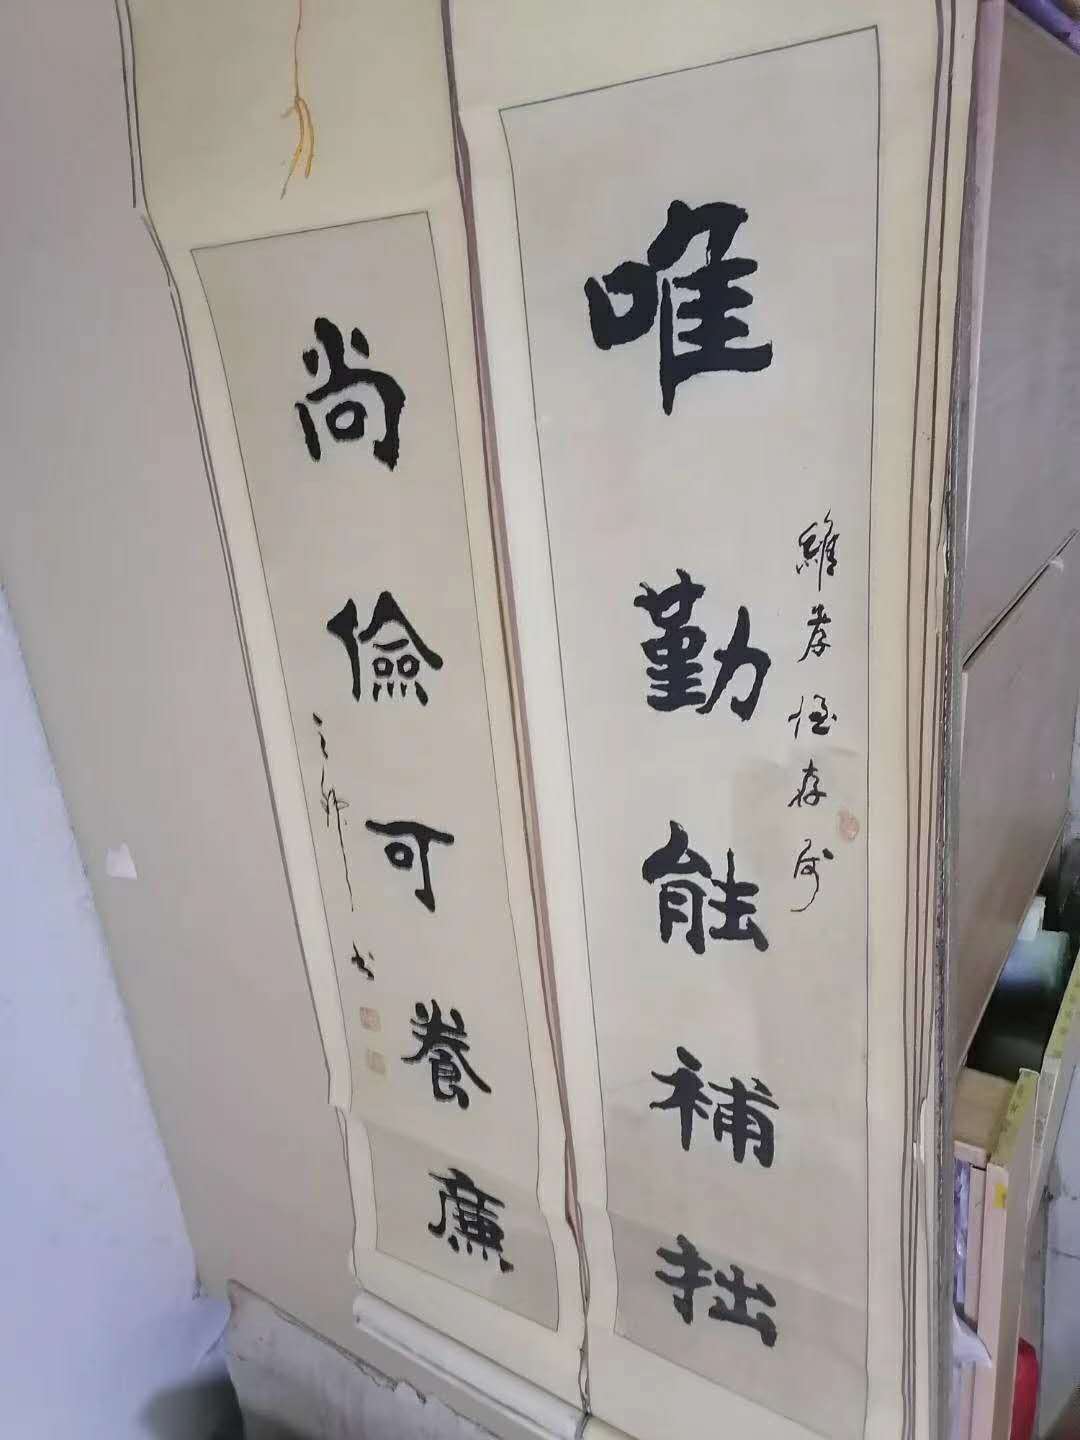 唯勤能補拙
維孝恆存
尚儉可養廉
書